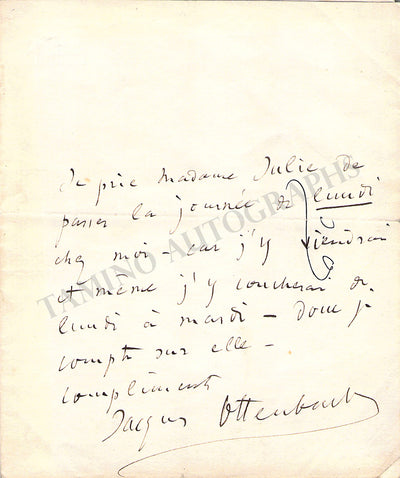 Je prie Madame Julie de
passer la journée de lundi
chez moi – car j'y viendrai
et même j'y coucherai de
lundi à mardi – donc je
compte sur elle –
compliments
Jacques Offenbach
TAMINO AUTOGRAPHS